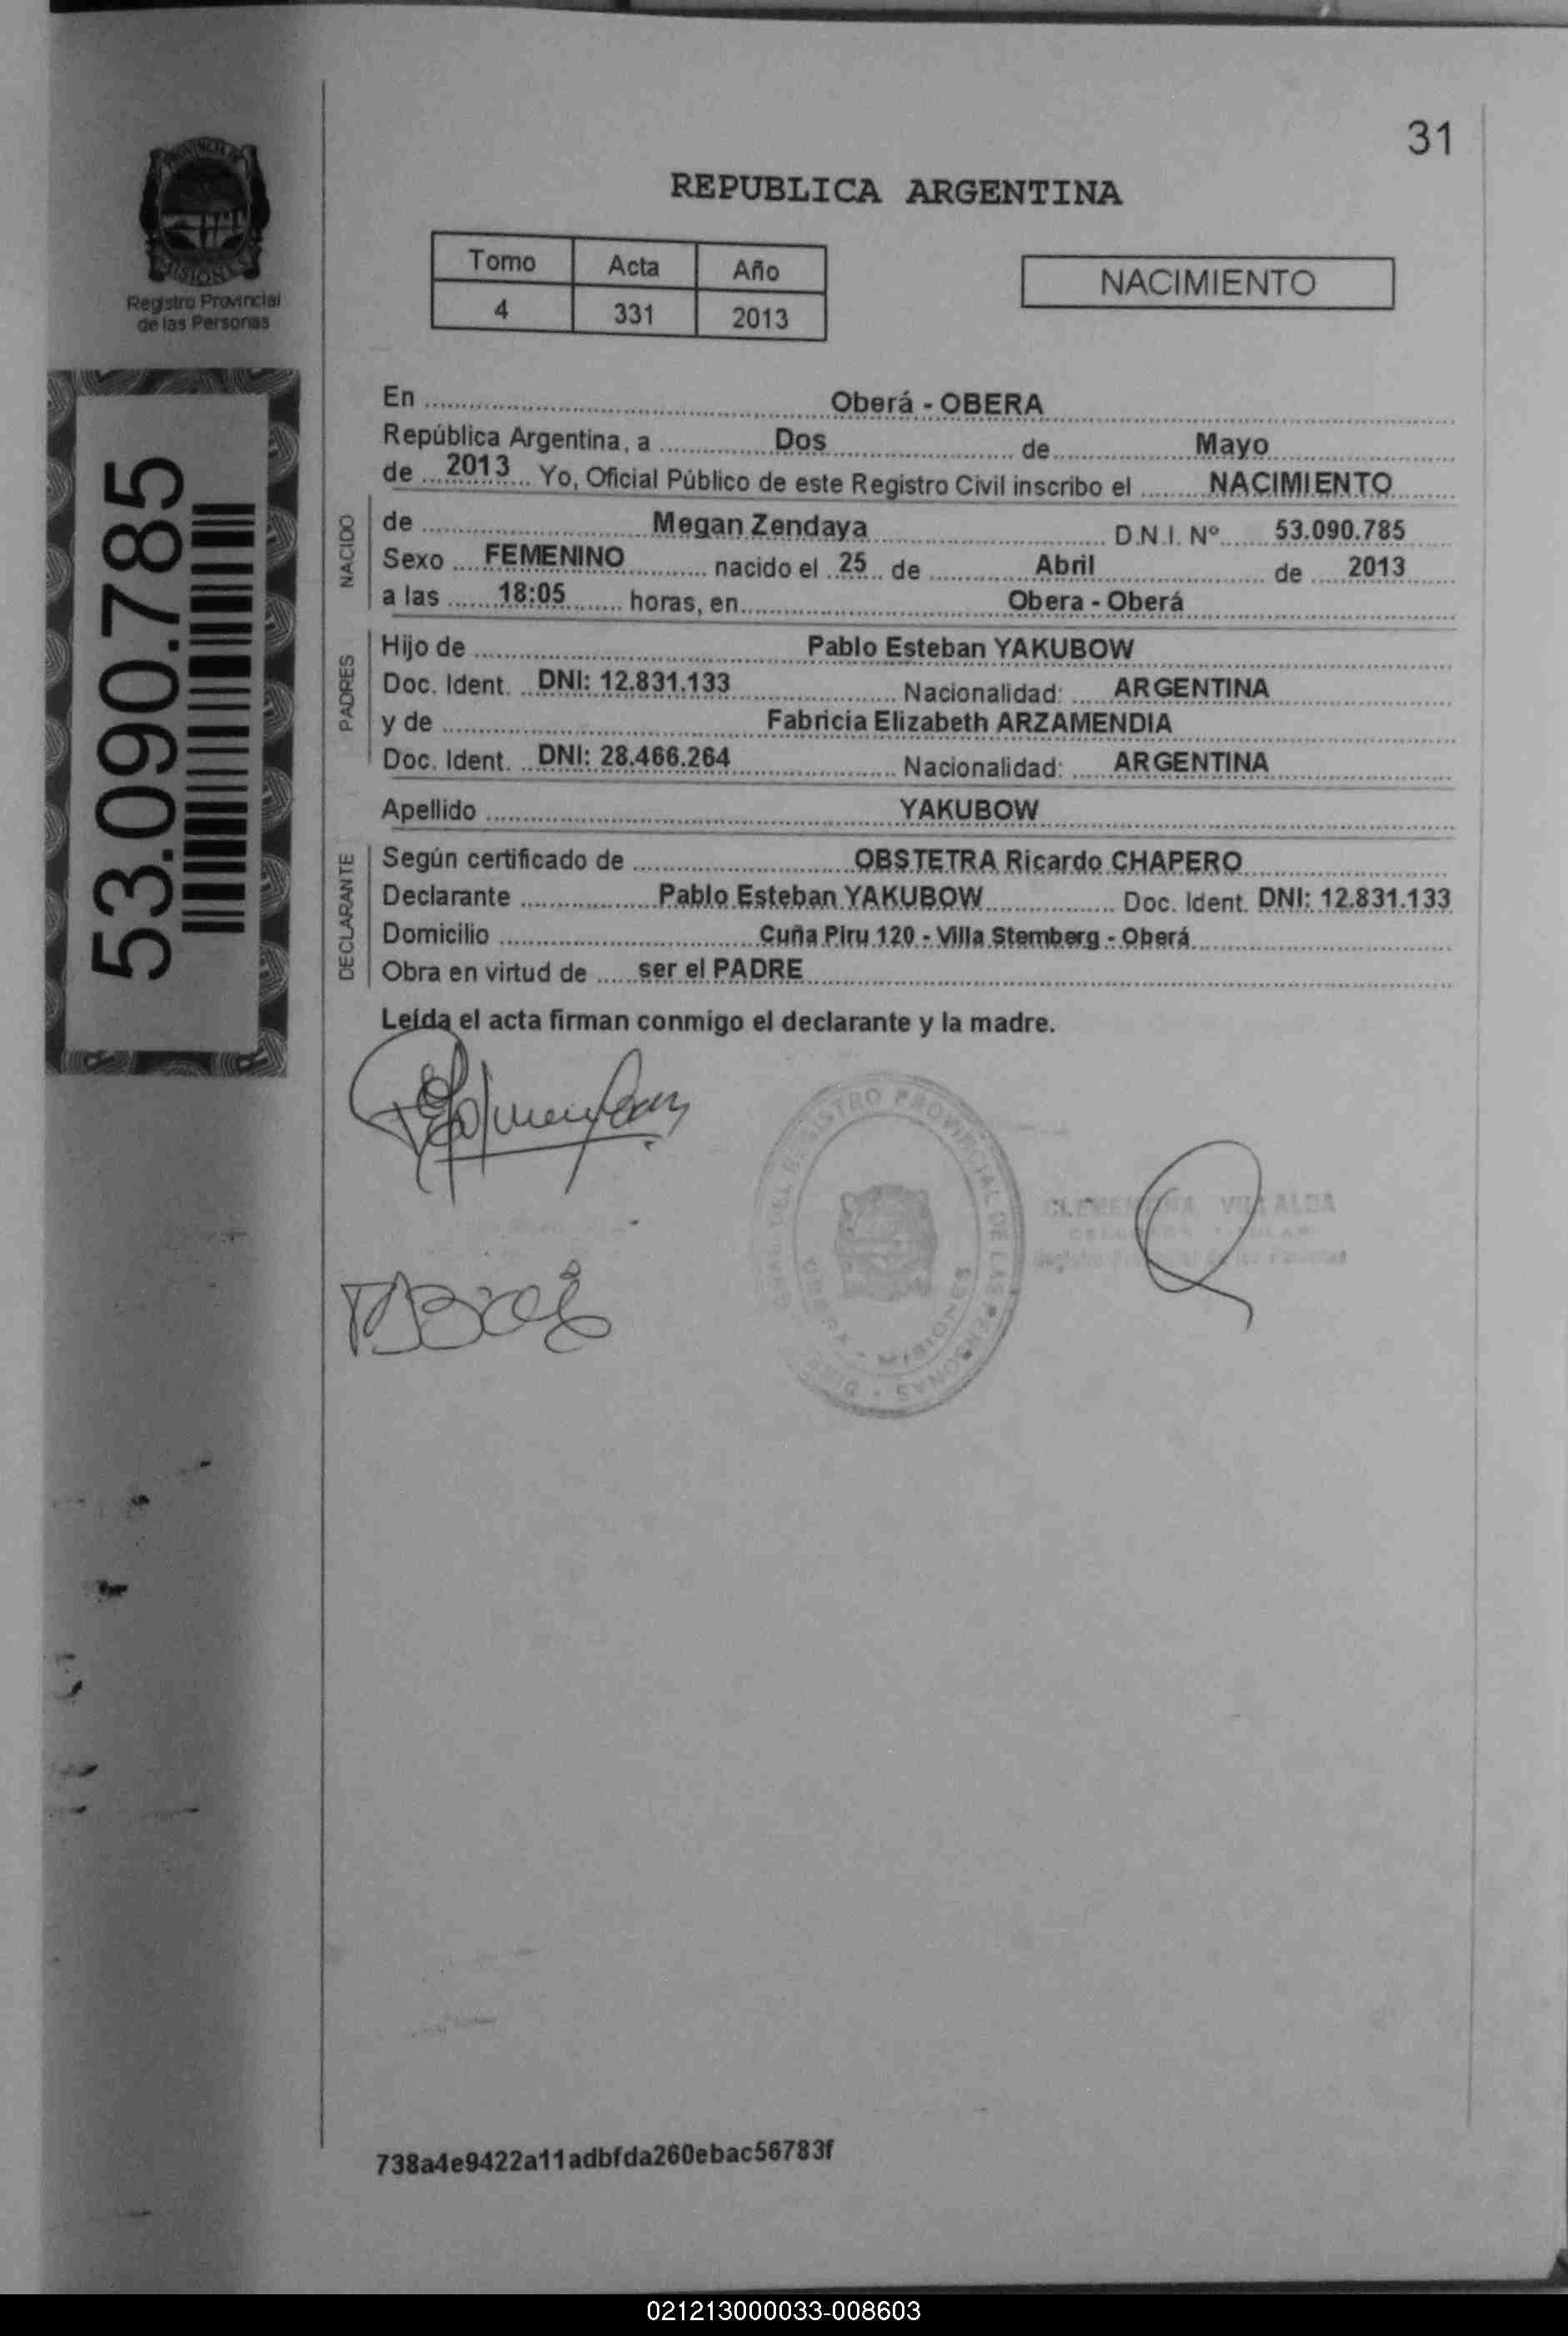 31
PROVINCIA DE
MISIONES
Registro Provincial
de las Personas
REPUBLICA ARGENTINA
Tomo Acta Año
4 331 2013
NACIMIENTO
53.090.785
En Oberá - OBERA
República Argentina, a Dos de Mayo
de 2013 Yo, Oficial Público de este Registro Civil inscribo el NACIMIENTO
NACIDO
de Megan Zendaya D.N.I. Nº 53.090.785
Sexo FEMENINO nacido el 25 de Abril de 2013
a las 18:05 horas, en Obera - Oberá
PADRES
Hijo de Pablo Esteban YAKUBOW
Doc. Ident. DNI: 12.831.133 Nacionalidad: ARGENTINA
y de Fabricia Elizabeth ARZAMENDIA
Doc. Ident. DNI: 28.466.264 Nacionalidad: ARGENTINA
Apellido YAKUBOW
DECLARANTE
Según certificado de OBSTETRA Ricardo CHAPERO
Declarante Pablo Esteban YAKUBOW Doc. Ident. DNI: 12.831.133
Domicilio Cuña Piru 120 - Villa Stemberg - Oberá
Obra en virtud de ser el PADRE
Leída el acta firman conmigo el declarante y la madre.
DEL REGISTRO PROVINCIAL DE LAS PERSONAS
OBERA - MISIONES
738a4e9422a11adbfda260ebac56783f
021213000033-008603